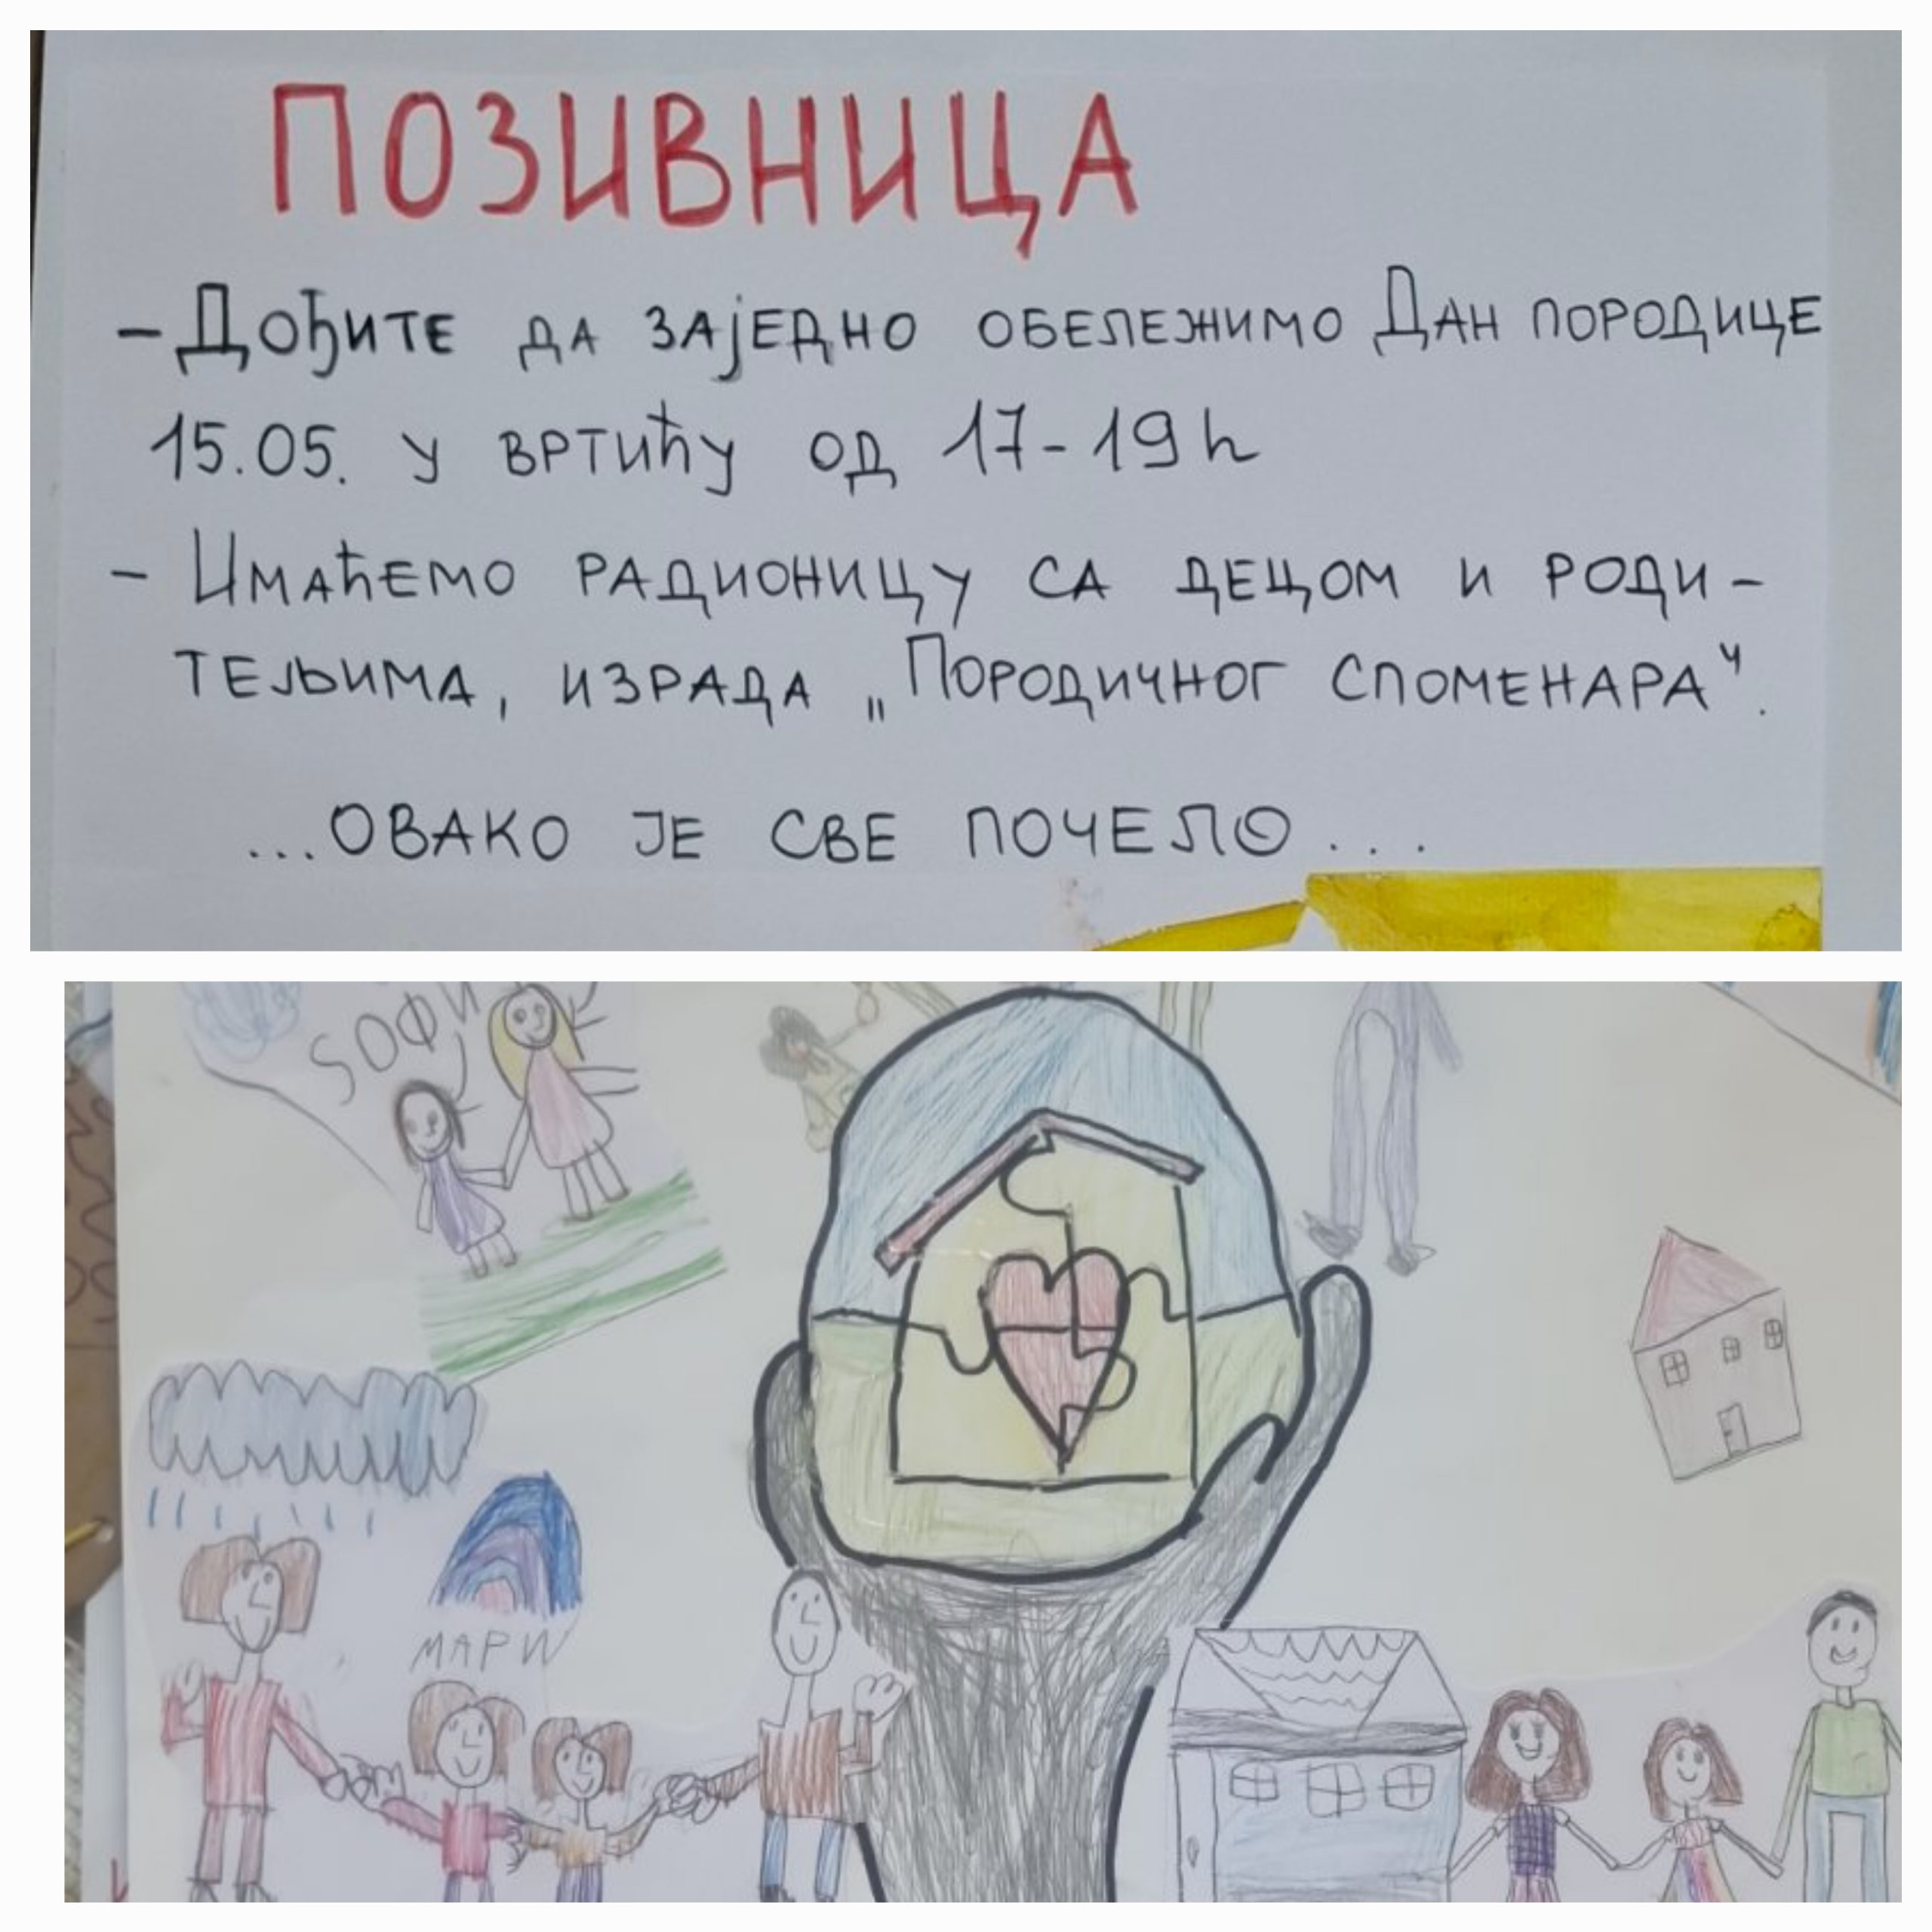 ПОЗИВНИЦА
- Дођите да заједно обележимо Дан породице
15.05. у вртићу од 17-19h
- Имаћемо радионицу са децом и роди-
тељима, израда „Породичног споменара".
...ОВАКО ЈЕ СВЕ ПОЧЕЛО...
SОФИ
МАРИ